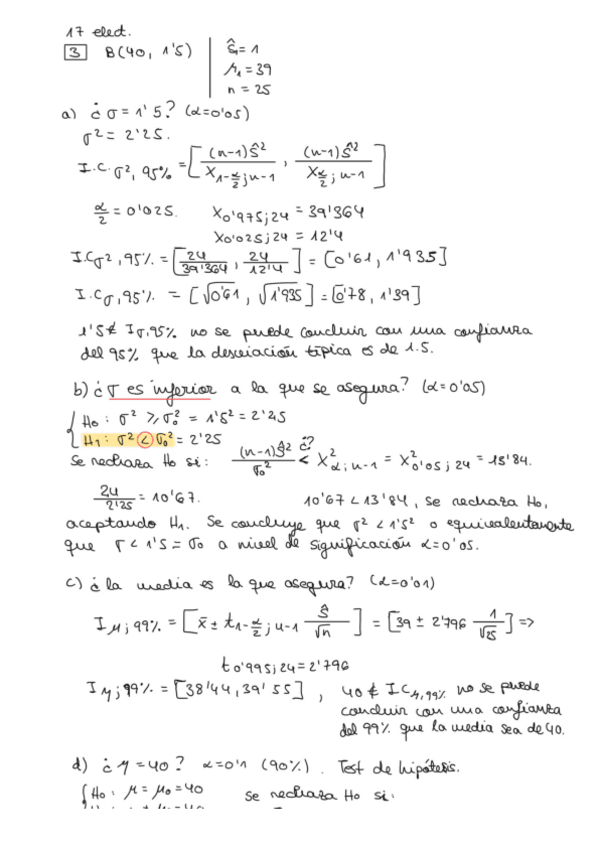 17 elect.
3 B(40, 1'5) Ŝ₁=1
μ₁=39
n = 25
a) ¿σ=1'5? (α=0'05)
σ²= 2'25.
I.C. σ², 95% = [ (n-1)Ŝ² / X₁₋α/₂; n-1 , (n-1)Ŝ² / Xα/₂; n-1 ]
α/2 = 0'025. X0'975;24 = 39'364
X0'025;24 = 12'4
I.Cσ², 95% = [ 24/39'364 , 24/12'4 ] = [0'61, 1'935]
I.C σ, 95% = [√0'61, √1'935] = [0'78, 1'39]
1'5 ∉ Iσ,95% no se puede concluir con una confianza
del 95% que la desviación típica es de 1.5.
b) ¿σ es inferior a la que se asegura? (α=0'05)
H₀ : σ² ≥ σ₀² = 1'5² = 2'25
H₁ : σ² < σ₀² = 2'25
Se rechaza H₀ si : (n-1)Ŝ² / σ₀² ¿<? X²α; n-1 = X²0'05; 24 = 13'84.
24/2'25 = 10'67. 10'67 < 13'84, se rechaza H₀,
aceptando H₁. Se concluye que σ² < 1'5² o equivalentemente
que σ < 1'5 = σ₀ a nivel de significación α=0'05.
c) ¿la media es la que asegura? (α=0'01)
I μ; 99% = [ x̄ ± t₁₋α/₂; n-1 Ŝ/√n ] = [39 ± 2'796 1/√25] =>
t0'995;24 = 2'796
I μ; 99% = [38'44, 39'55] , 40 ∉ ICμ,99% no se puede
concluir con una confianza
del 99% que la media sea de 40.
d) ¿μ = 40? α=0'1 (90%). Test de hipótesis.
H₀ : μ = μ₀ = 40 se rechaza H₀ si: